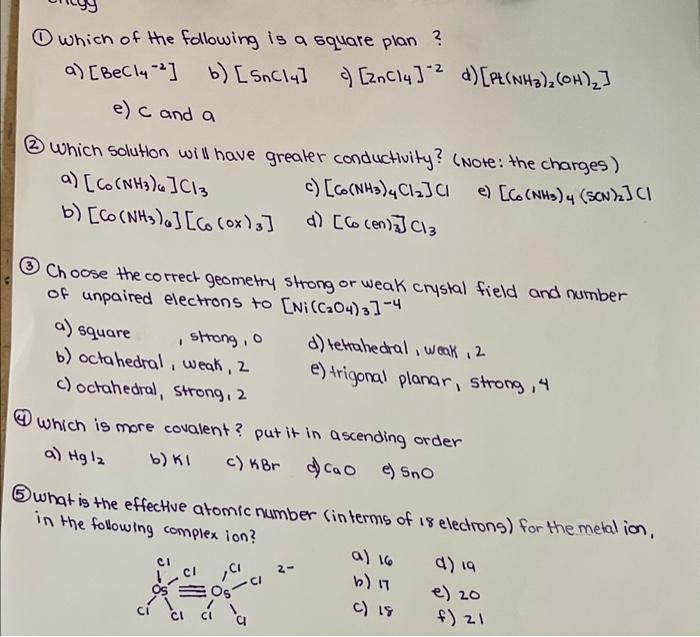 ① Which of the following is a square plan ?
a) [BeCl4⁻²] b) [SnCl4] c) [ZnCl4]⁻² d) [Pt(NH3)2(OH)2]
e) c and a
② Which solution will have greater conductivity? (Note: the charges)
a) [Co(NH3)6]Cl3 c) [Co(NH3)4Cl2]Cl e) [Co(NH3)4(SCN)2]Cl
b) [Co(NH3)6][Co(ox)3] d) [Co(en)3]Cl3
③ Choose the correct geometry strong or weak crystal field and number
of unpaired electrons to [Ni(C2O4)3]⁻⁴
a) square , strong, 0 d) tetrahedral, weak, 2
b) octahedral, weak, 2 e) trigonal planar, strong, 4
c) octahedral, strong, 2
④ which is more covalent? put it in ascending order
a) HgI2 b) KI c) KBr d) CaO e) SnO
⑤ what is the effective atomic number (in terms of 18 electrons) for the metal ion,
in the following complex ion?
Cl Cl Cl Cl 2-
Os≡Os
Cl Cl Cl Cl
a) 16 d) 19
b) 17 e) 20
c) 18 f) 21